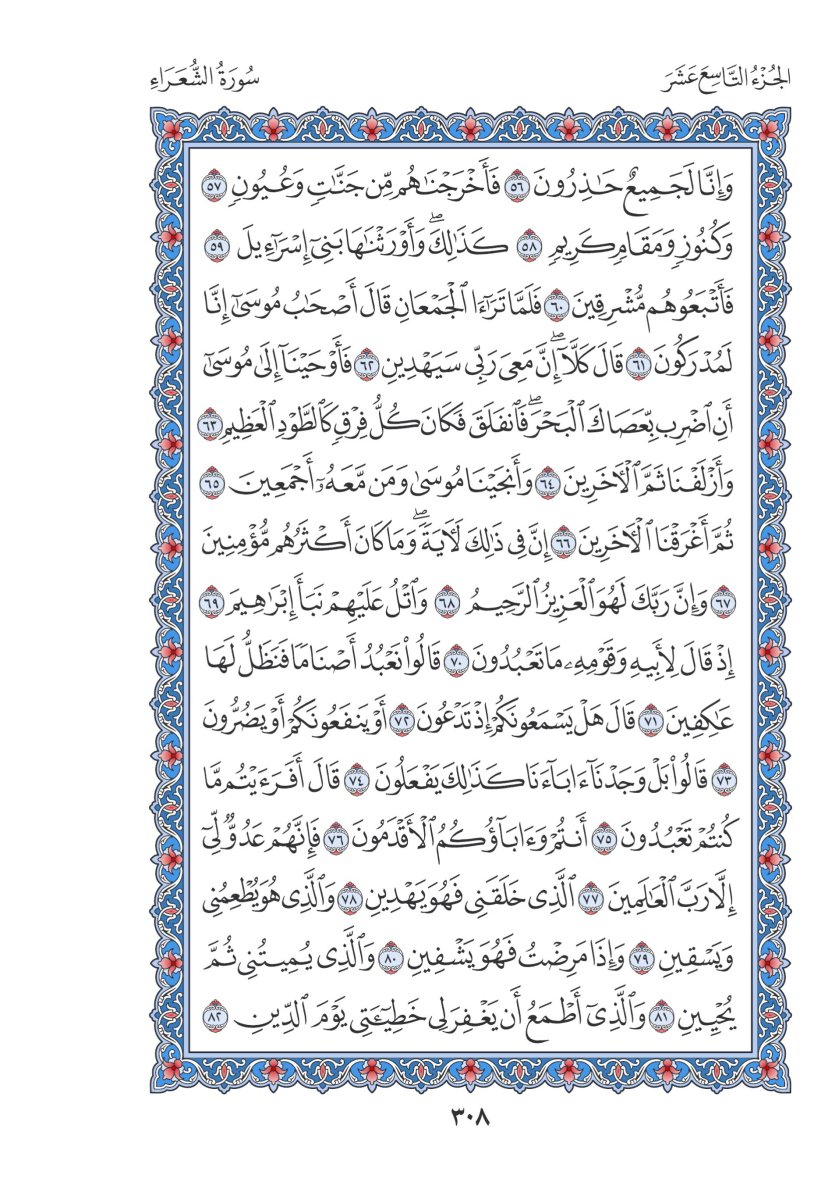 الجُزْءُ التَّاسِعَ عَشَرَ
سُورَةُ الشُّعَرَاءِ
وَإِنَّا لَجَمِيعٌ حَٰذِرُونَ ٥٦ فَأَخْرَجْنَٰهُم مِّن جَنَّٰتٖ وَعُيُونٖ ٥٧
وَكُنُوزٖ وَمَقَامٖ كَرِيمٖ ٥٨ كَذَٰلِكَۖ وَأَوْرَثْنَٰهَا بَنِيٓ إِسْرَٰٓءِيلَ ٥٩
فَأَتْبَعُوهُم مُّشْرِقِينَ ٦٠ فَلَمَّا تَرَٰٓءَا ٱلْجَمْعَانِ قَالَ أَصْحَٰبُ مُوسَىٰٓ إِنَّا
لَمُدْرَكُونَ ٦١ قَالَ كَلَّآۖ إِنَّ مَعِيَ رَبِّي سَيَهْدِينِ ٦٢ فَأَوْحَيْنَآ إِلَىٰ مُوسَىٰٓ
أَنِ ٱضْرِب بِّعَصَاكَ ٱلْبَحْرَۖ فَٱنفَلَقَ فَكَانَ كُلُّ فِرْقٖ كَٱلطَّوْدِ ٱلْعَظِيمِ ٦٣
وَأَزْلَفْنَا ثَمَّ ٱلْأٓخَرِينَ ٦٤ وَأَنجَيْنَا مُوسَىٰ وَمَن مَّعَهُۥٓ أَجْمَعِينَ ٦٥
ثُمَّ أَغْرَقْنَا ٱلْأٓخَرِينَ ٦٦ إِنَّ فِي ذَٰلِكَ لَأٓيَةٗۖ وَمَا كَانَ أَكْثَرُهُم مُّؤْمِنِينَ
٦٧ وَإِنَّ رَبَّكَ لَهُوَ ٱلْعَزِيزُ ٱلرَّحِيمُ ٦٨ وَٱتْلُ عَلَيْهِمْ نَبَأَ إِبْرَٰهِيمَ ٦٩
إِذْ قَالَ لِأَبِيهِ وَقَوْمِهِۦ مَا تَعْبُدُونَ ٧٠ قَالُوا۟ نَعْبُدُ أَصْنَامٗا فَنَظَلُّ لَهَا
عَٰكِفِينَ ٧١ قَالَ هَلْ يَسْمَعُونَكُمْ إِذْ تَدْعُونَ ٧٢ أَوْ يَنفَعُونَكُمْ أَوْ يَضُرُّونَ
٧٣ قَالُوا۟ بَلْ وَجَدْنَآ ءَابَآءَنَا كَذَٰلِكَ يَفْعَلُونَ ٧٤ قَالَ أَفَرَءَيْتُم مَّا
كُنتُمْ تَعْبُدُونَ ٧٥ أَنتُمْ وَءَابَآؤُكُمُ ٱلْأَقْدَمُونَ ٧٦ فَإِنَّهُمْ عَدُوّٞ لِّيٓ
إِلَّا رَبَّ ٱلْعَٰلَمِينَ ٧٧ ٱلَّذِي خَلَقَنِي فَهُوَ يَهْدِينِ ٧٨ وَٱلَّذِي هُوَ يُطْعِمُنِي
وَيَسْقِينِ ٧٩ وَإِذَا مَرِضْتُ فَهُوَ يَشْفِينِ ٨٠ وَٱلَّذِي يُمِيتُنِي ثُمَّ
يُحْيِينِ ٨١ وَٱلَّذِيٓ أَطْمَعُ أَن يَغْفِرَ لِي خَطِيٓـَٔتِي يَوْمَ ٱلدِّينِ ٨٢
٣٠٨